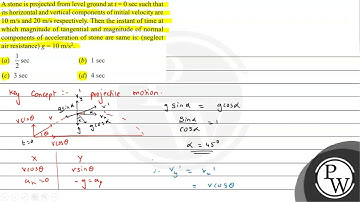 A stone is projected from level ground at t = 0 sec such that
its horizontal and vertical components of initial velocity are
10 m/s and 20 m/s respectively. Then the instant of time at
which magnitude of tangential and magnitude of normal
components of acceleration of stone are same is: (neglect
air resistance) g = 10 m/s².
(a) 1/2 sec (b) 1 sec
(c) 3 sec (d) 4 sec
Key Concept :- projectile motion.
g sinα = g cosα
sinα/cosα = 1
α = 45°
vy'
g sinα
vx'
g cosα
vsinθ
θ
t=0
vcosθ
x y
vcosθ vsinθ
ax=0 -g=ay
∴ vy' = vx'
= vcosθ
PW